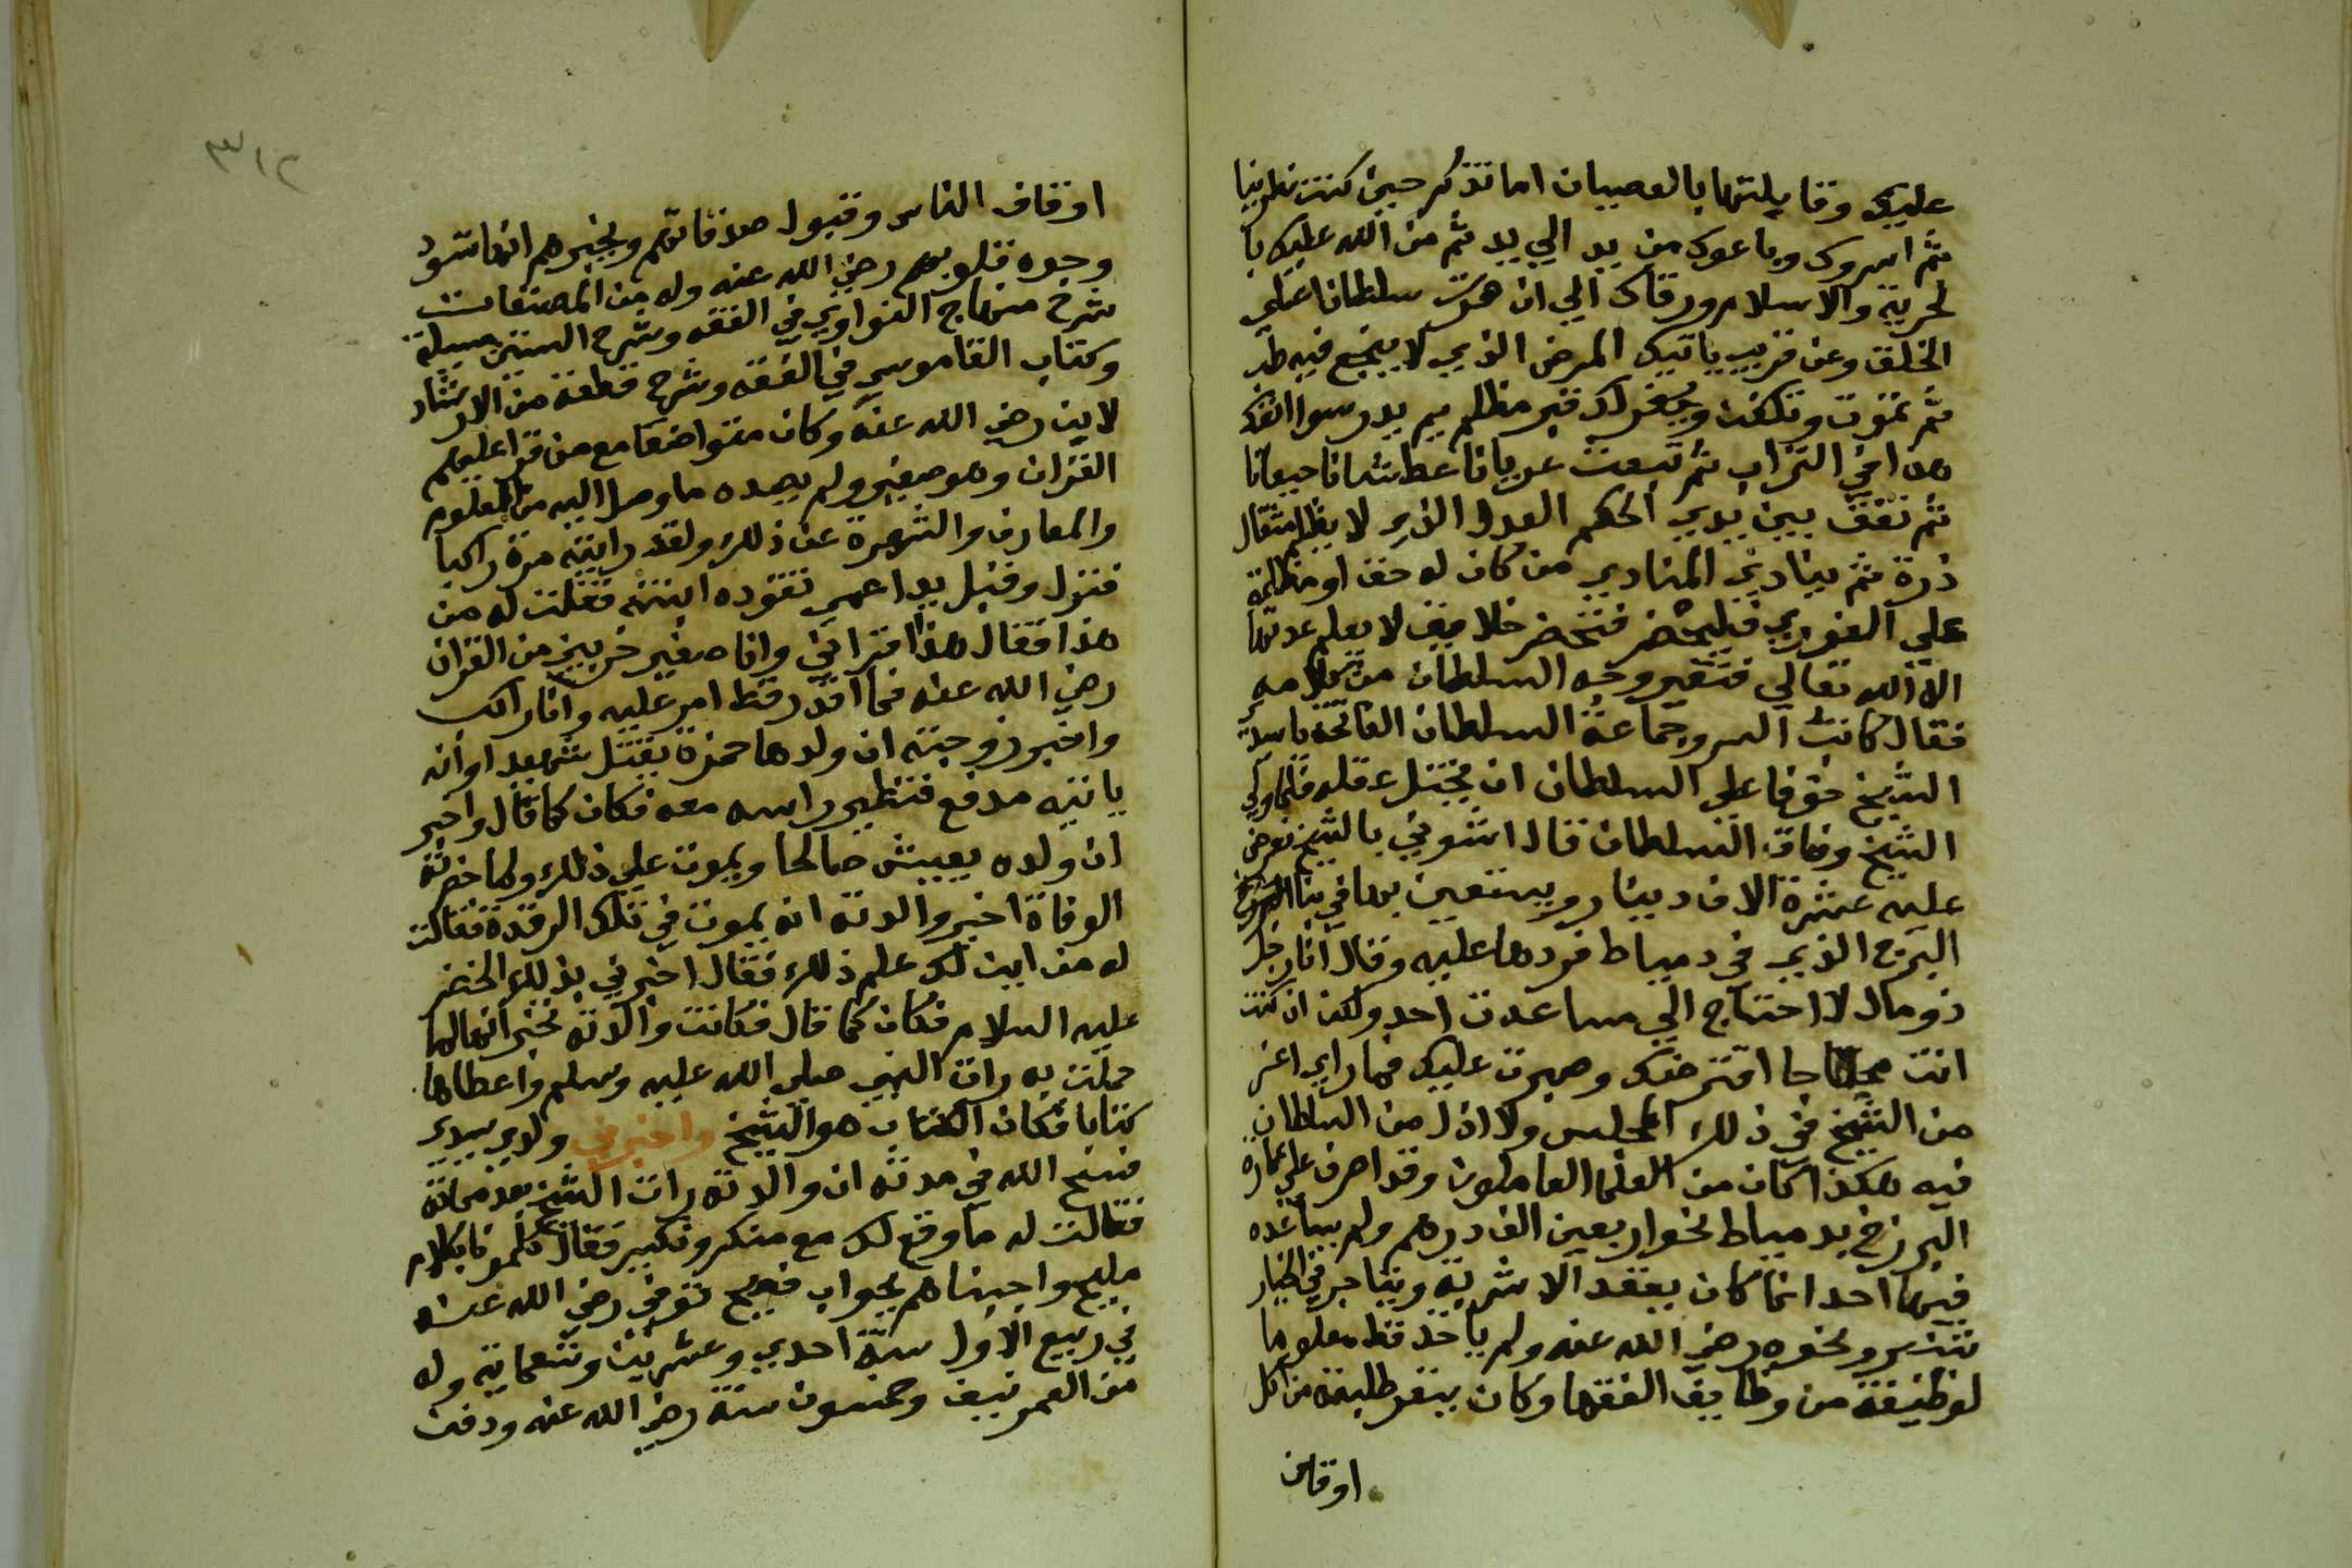 عليك وقابلتها بالعصيان اما تذكر حين كنت نصرانيا
ثم اسروك وباعوك من يد الي يد ثم من الله عليك با
لحرية والاسلام ورقاك الي ان صرت سلطانا علي
الخلق وعن قريب ياتيك المرض الذي لا ينجع فيه طب
ثم تموت وتكفن ويحفر لك قبر مظلم ثم يدرسوا انفك
هذا في التراب ثم تبعث عريانا عطشانا جيعانا
ثم تقف بين يدي الحكم العدل الذي لا يظلم مثقال
ذرة ثم ينادي المنادي من كان له حق او مظلمة
علي الغوري فليحضر فتحضر خلايق لا يعلم عدتها
الا الله تعالي فتغير وجه السلطان من كلامه
فقال كاتب السر وجماعة السلطان الفاتحة يا سيدي
الشيخ خوفا علي السلطان ان يختل عقله فلما ولي
الشيخ وفاق السلطان قال ائتوني بالشيخ فعرض
عليه عشرة الاف دينار ويستعين بها في بنا البرزخ
البرج الذي في دمياط فردها عليه وقال انا رجل
ذو مال لا احتاج الي مساعدت احد ولكن ان كنت
انت محتاجا اقترضتك وصبرت عليك فما راي اعز
من الشيخ في ذلك المجلس ولا اذل من السلطان
فيه هكذا كان من العلما العاملون وقد اصرف علي عمارة
البرزخ بدمياط نحو اربعين الف درهم ولم يساعده
فيها احد انما كان يعقد الاشربة ويتاجر في الخيار
شنبر ونحوه رضي الله عنه ولم ياخذ قط معلوما
لوظيفة من وظايف الفقها وكان ينفر طلبته من اكل
اوقاف
٣١٢
اوقاف الناس وقبول صدقاتهم ويخبرهم انها تسود
وجوه قلوبهم رضي الله عنه وله من المصنفات
شرح منهاج النواوي في الفقه وشرح الستين مسيلة
وكتاب القاموس في الفقه وشرح قطعة من الارشاد
لابن رضي الله عنه وكان متواضعا مع من قرا عليهم
القران وهو صغير ولم يصده ما وصل اليه من العلوم
والمعارف والشهرة عن ذلك ولقد رايته مرة راكبا
فنزل وقبل يد اعمي تقوده ابنته فقلت له من
هذا فقال هذا قراني وانا صغير حزبين من القران
رضي الله عنه فما اقدر قط امر عليه وانا راكب
واخبر زوجته ان ولدها حمزة يقتل شهيدا وانه
ياتيه مدفع فتطير راسه معه فكان كما قال واخبر
ان ولده يعيش صالحا ويموت علي ذلك ولما حضرته
الوفاة اخبر والدته انه يموت في تلك الرقدة فقالت
له من اين لك علم ذلك فقال اخبرني بذلك الخضر
عليه السلام فكان كما قال فكانت والدته تخبر انها لما
حملت به رات النبي صلي الله عليه وسلم واعطاها
كتابا فكان الكتاب هو الشيخ واخبرني ولدي سيدي
فسح الله في مدته ان والدته رات الشيخ بعد مماته
فقالت له ما وقع لك مع منكر ونكير فقال كلمونا بكلام
مليح واجبناهم بجواب فصيح توفي رضي الله عنه
في ربيع الاول سنة احدي وعشرين وتسعماية وله
من العمر نيف وخمسون سنة رضي الله عنه ودفن